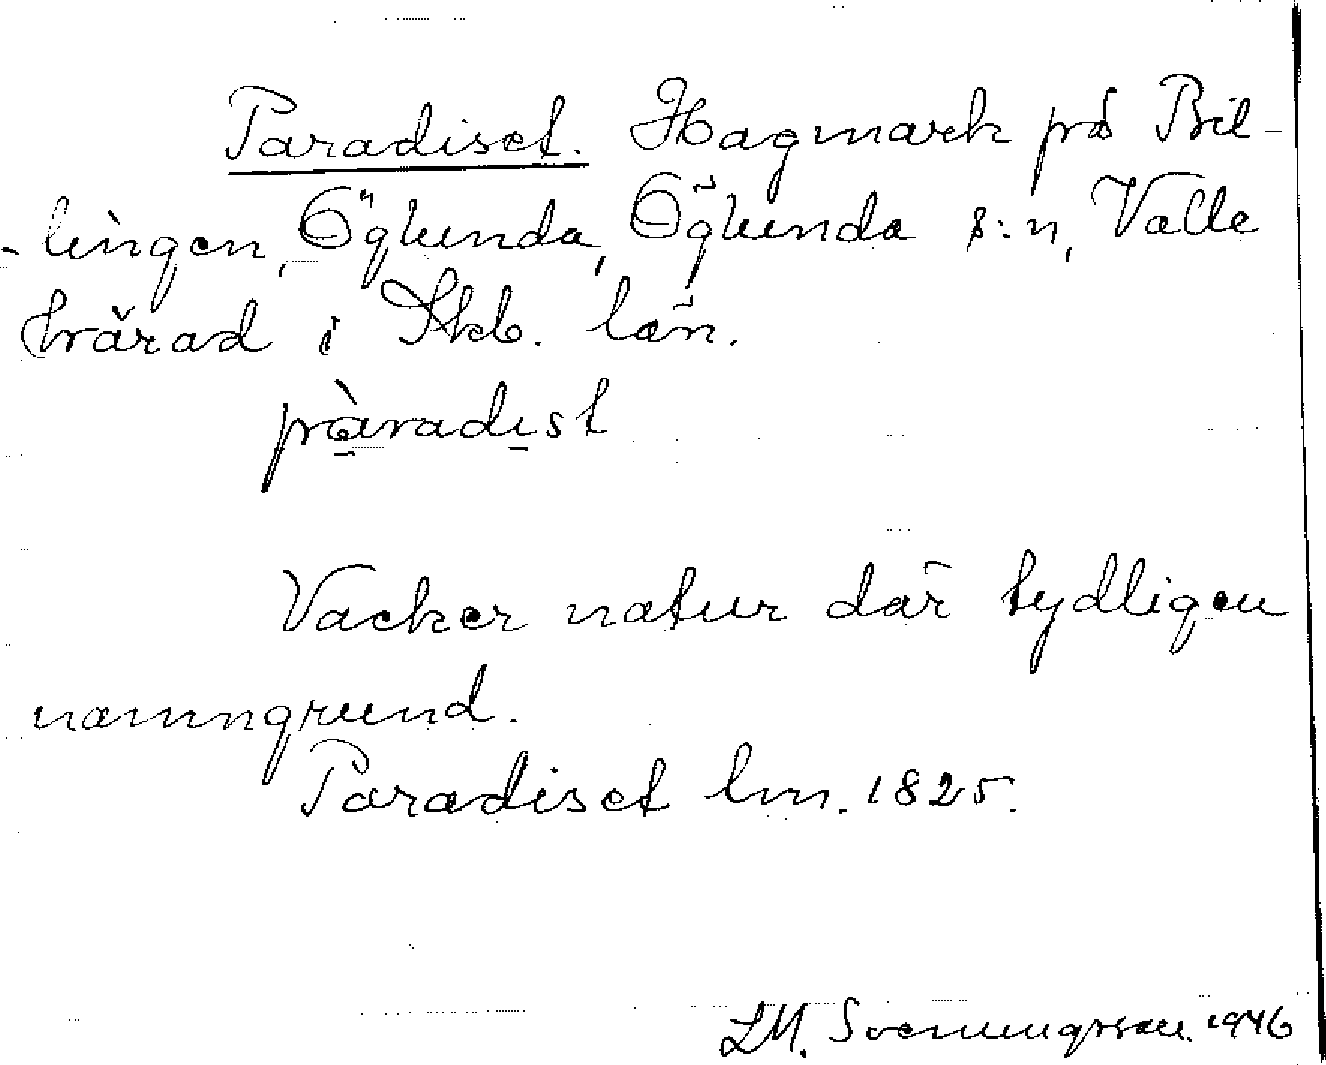 Paradiset. Hagmark på Bil-
-lingen, Öglunda, Öglunda s:n, Valle
härad i Skb. län.
pàradıst
Vacker natur där tydligen
namngrund.
Paradiset lm. 1825.
LM. Svenungsson. 1946